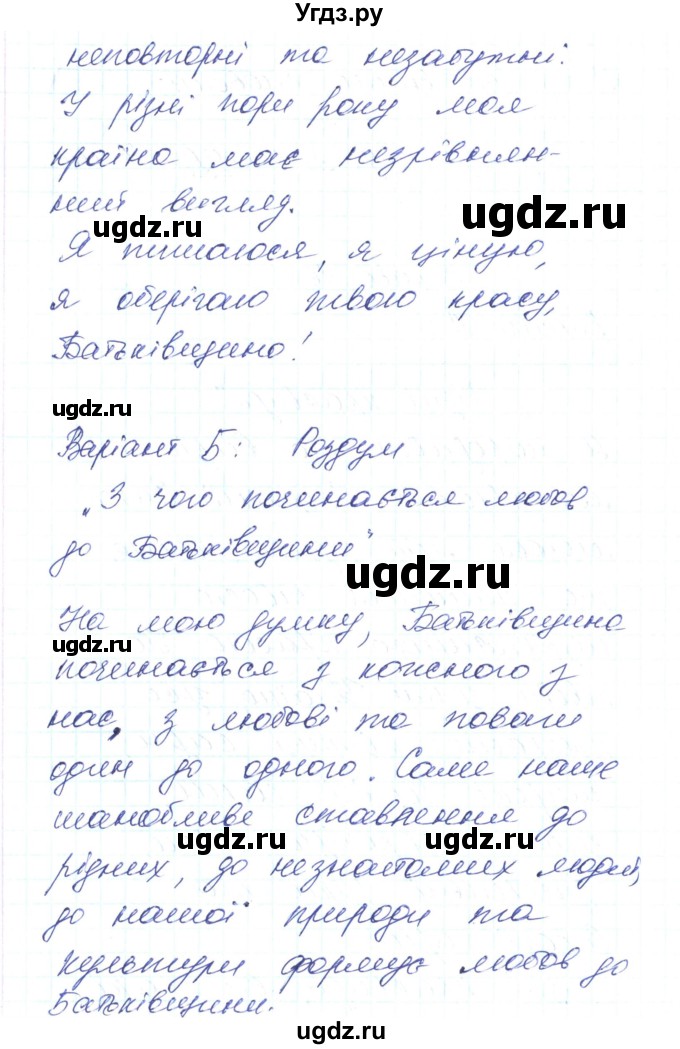 Угдз.ру
неповторні та незабутні.
У різні пори року моя
країна має незрівнян-
ний вигляд.
ugdz.ru
ugdz.ru
Я пишаюся, я ціную,
я оберігаю твою красу,
Батьківщино!
ugdz.ru
Варіант Б: Роздум
„З чого починається любов
до Батьківщини"
ugdz.ru
На мою думку, Батьківщина
ugdz.ru
починається з кожного з
нас, з любові та поваги
один до одного. Саме наше
шанобливе ставлення до
ugdz.ru
ugdz.ru
рідних, до незнайомих людей,
до нашої природи та
культури формує любов до
Батьківщини.
ugdz.ru